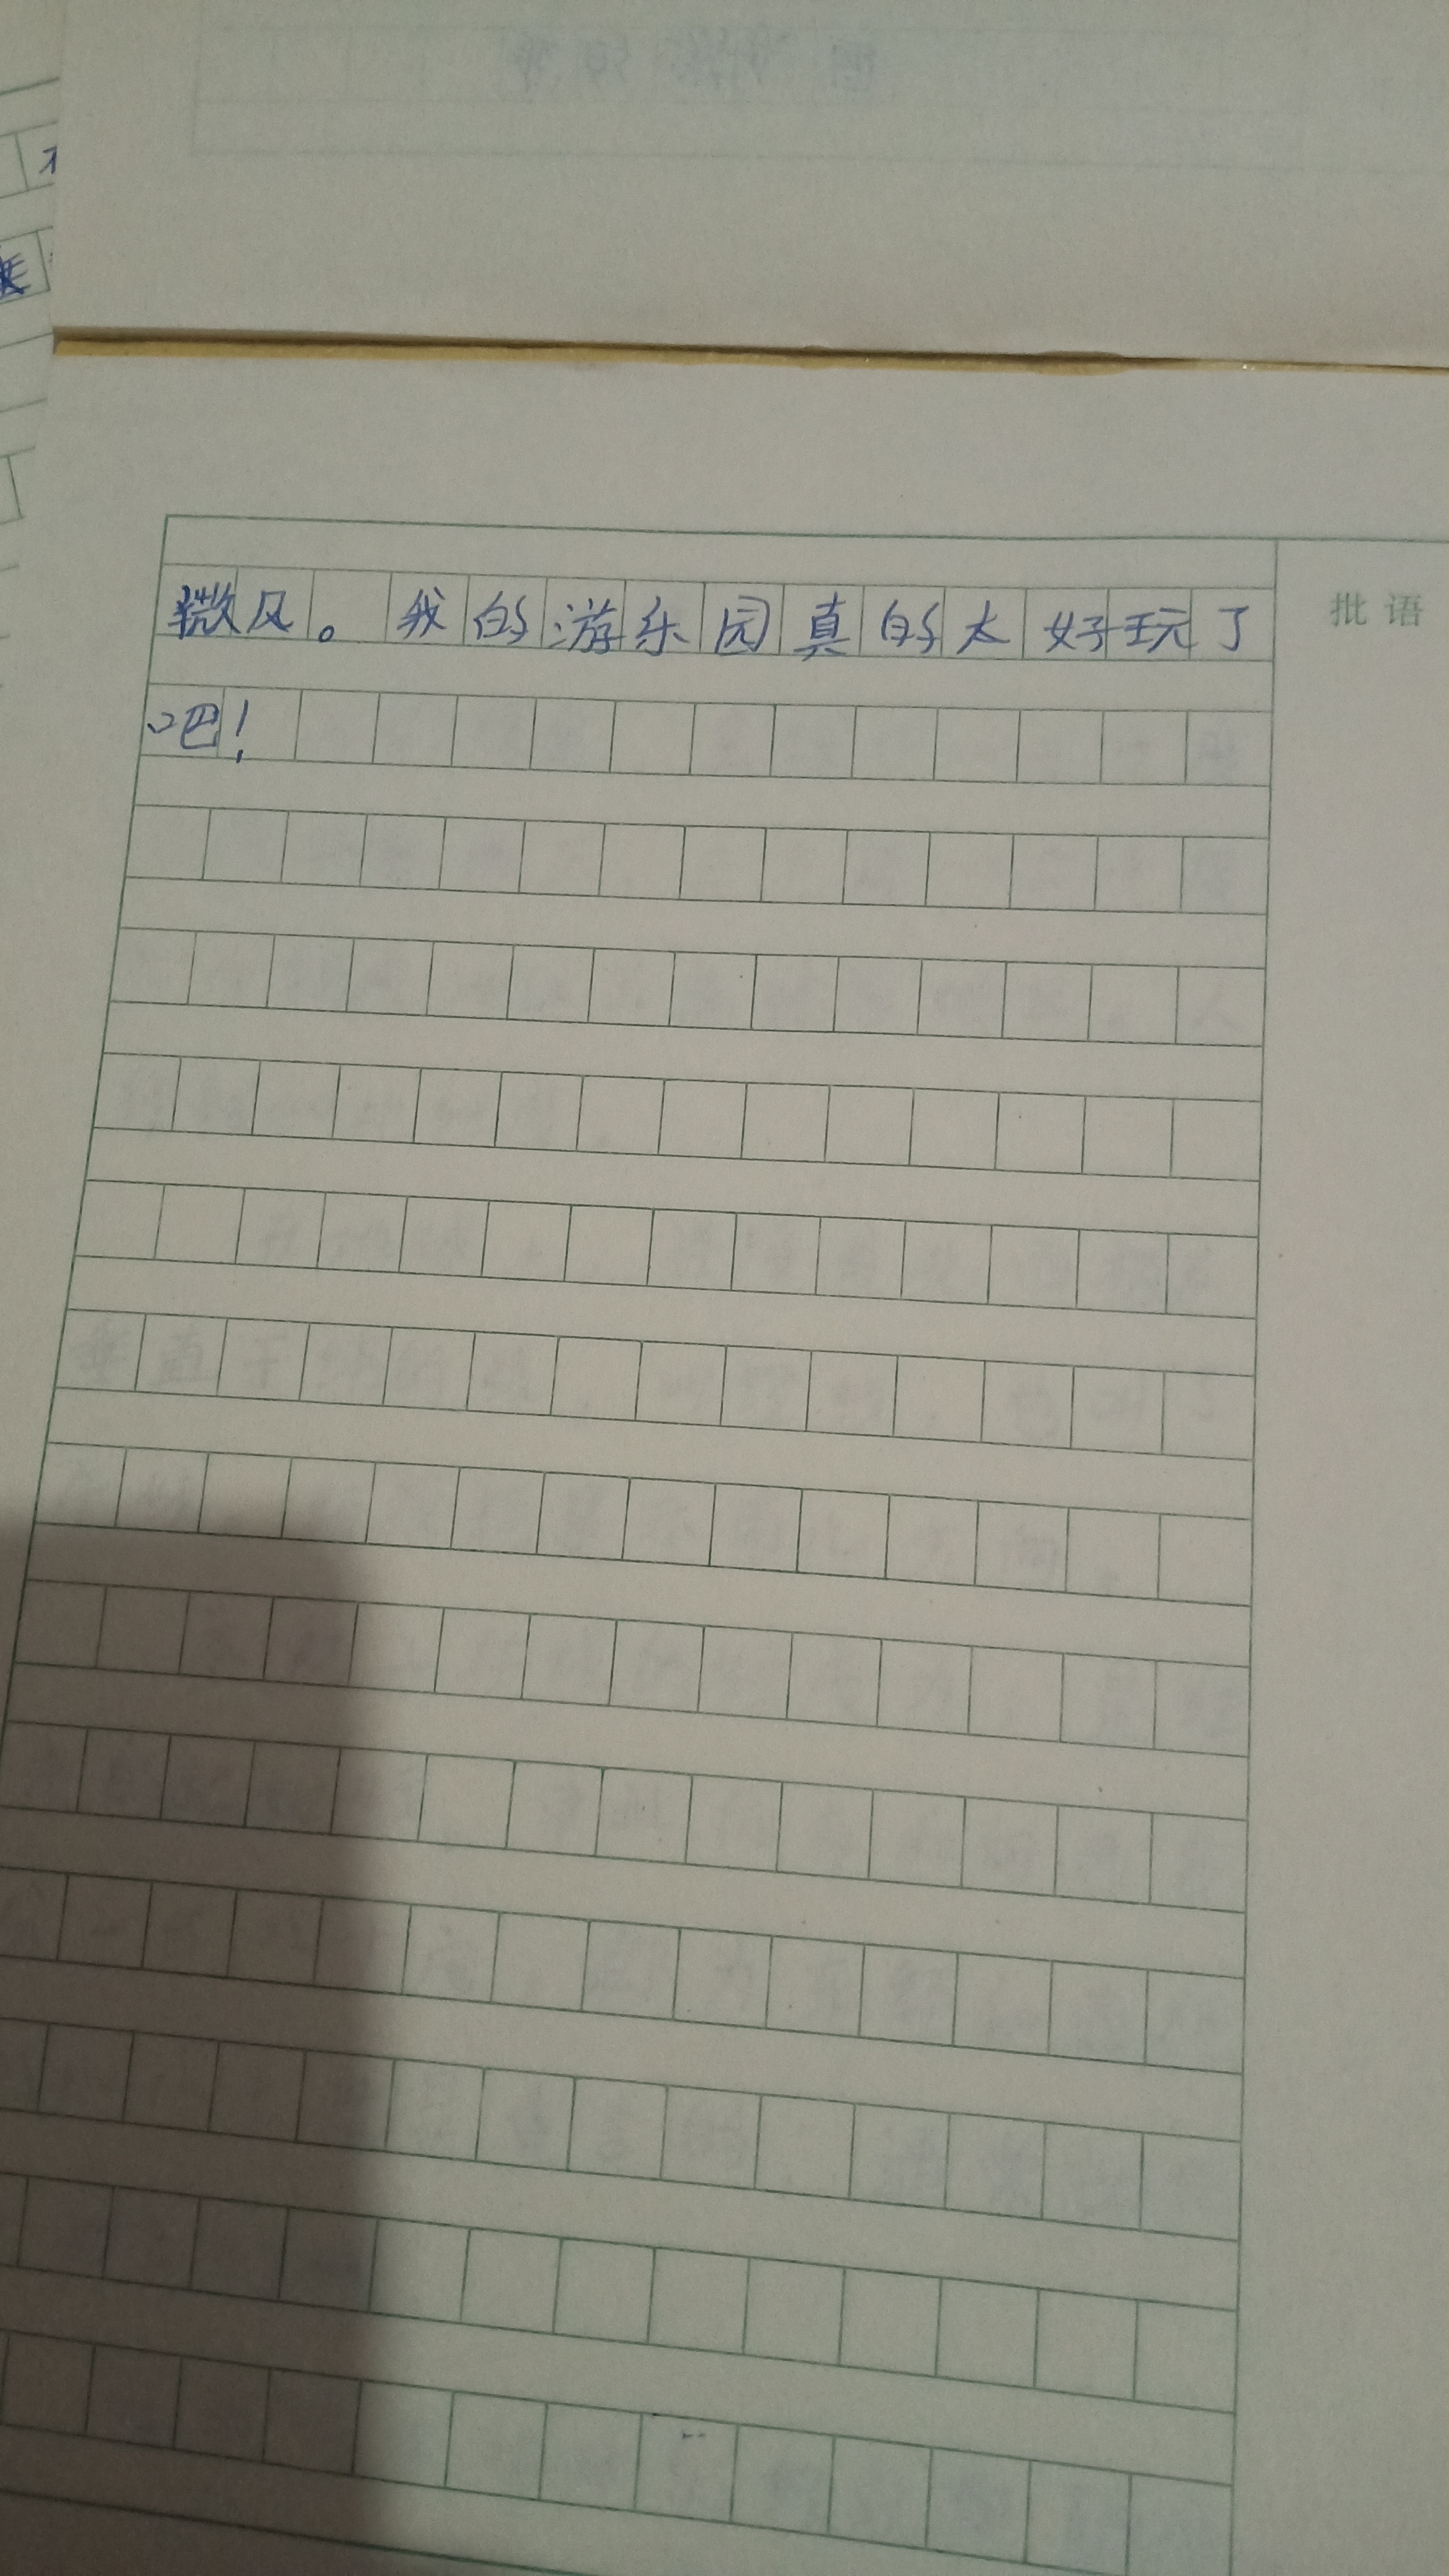 微风。我的游乐园真的太好玩了
吧！
批语